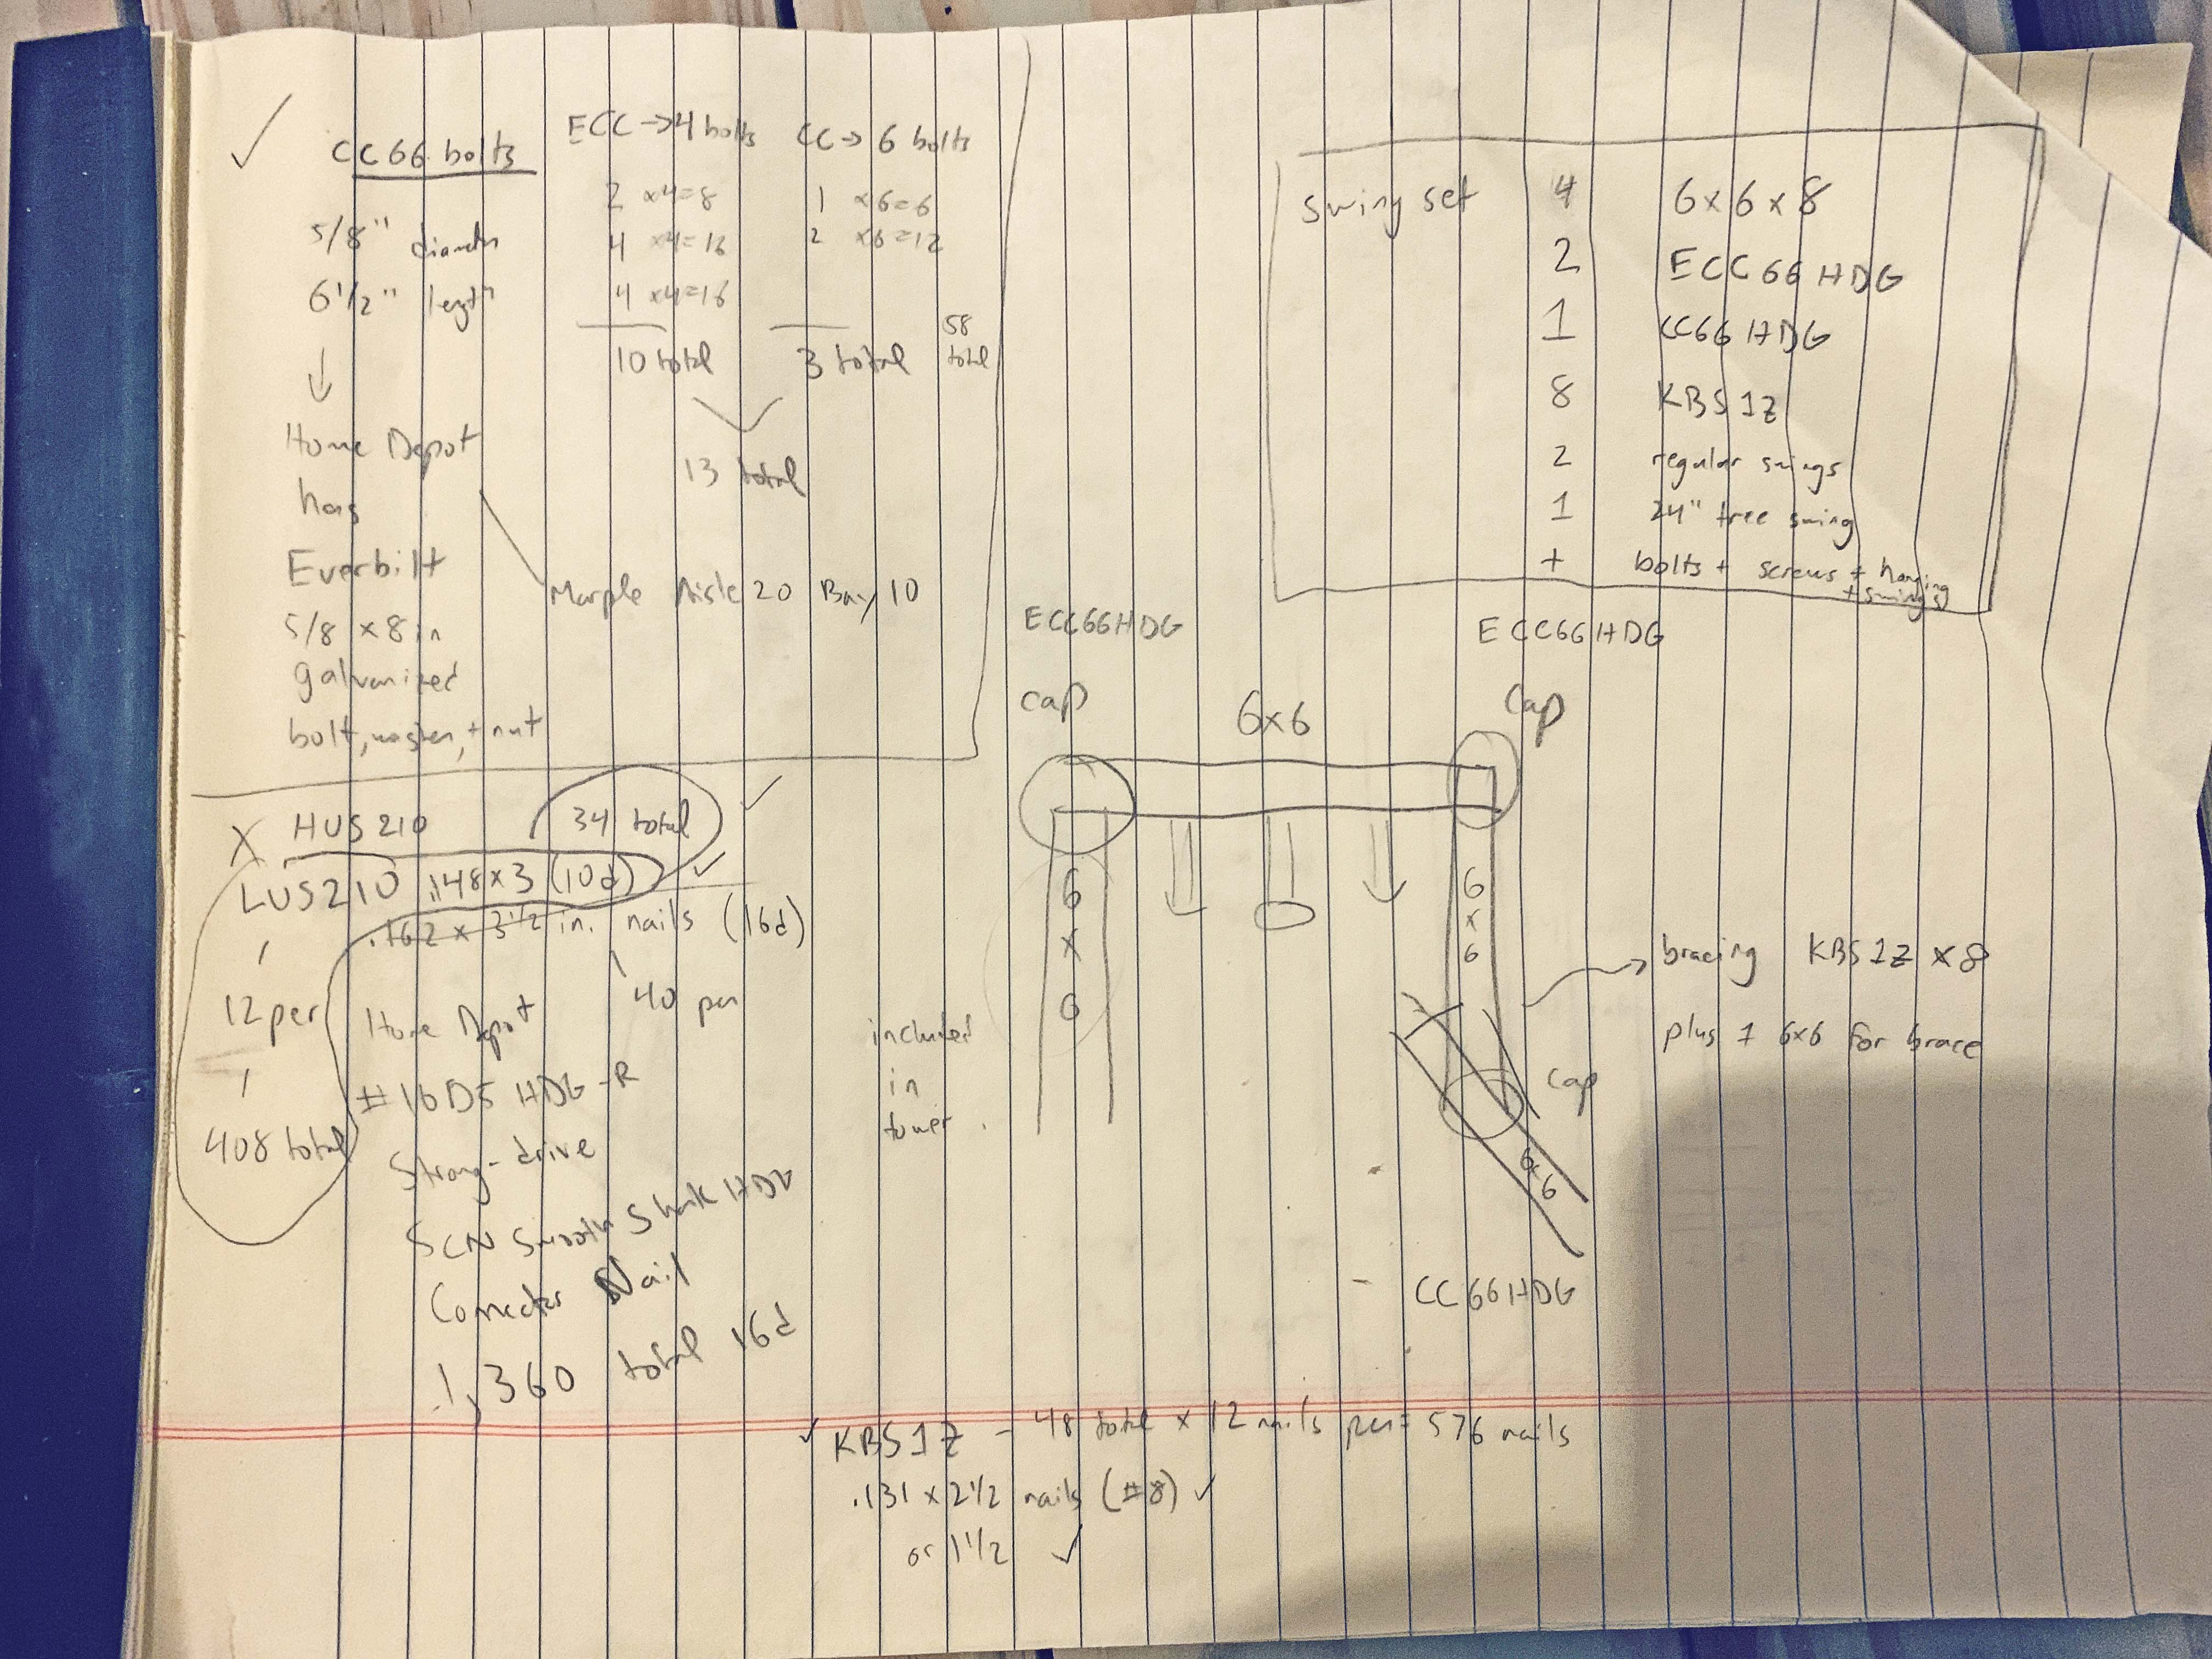 ✓ CC66 bolts
5/8" diameter
6 1/2" length
↓
Home Depot
has
Everbilt
5/8 x 8 in
galvanized
bolt, washer, + nut
ECC → 4 bolts
2 x4=8
4 x4=16
4 x4=16
10 total
CC → 6 bolts
1 x6=6
2 x6=12
3 total
58
total
13 total
Marple Aisle 20 Bay 10
Swing set
4 6x6x8
2 ECC66HDG
1 CC66HDG
8 KBS1Z
2 regular swings
1 24" tree swing
+ bolts + screws + hanging
+ swings
ECC66HDG
cap
6x6
ECC66HDG
Cap
6
x
6
6
x
6
included
in
tower.
bracing KBS1Z x8
plus 1 6x6 for brace
cap
6x6
CC66HDG
X HUS210 34 total ✓
LUS210 .148x3 (10d) ✓
.162 x 3 1/2 in. nails (16d)
12 per
408 total
40 per
Home Depot
#16D5HDG-R
Strong-drive
SCN Smooth Shank HDG
Connector Nail
1,360 total 16d
✓ KBS1Z - 48 total x 12 nails per = 576 nails
.131 x 2 1/2 nails (#8) ✓
or 1 1/2 ✓